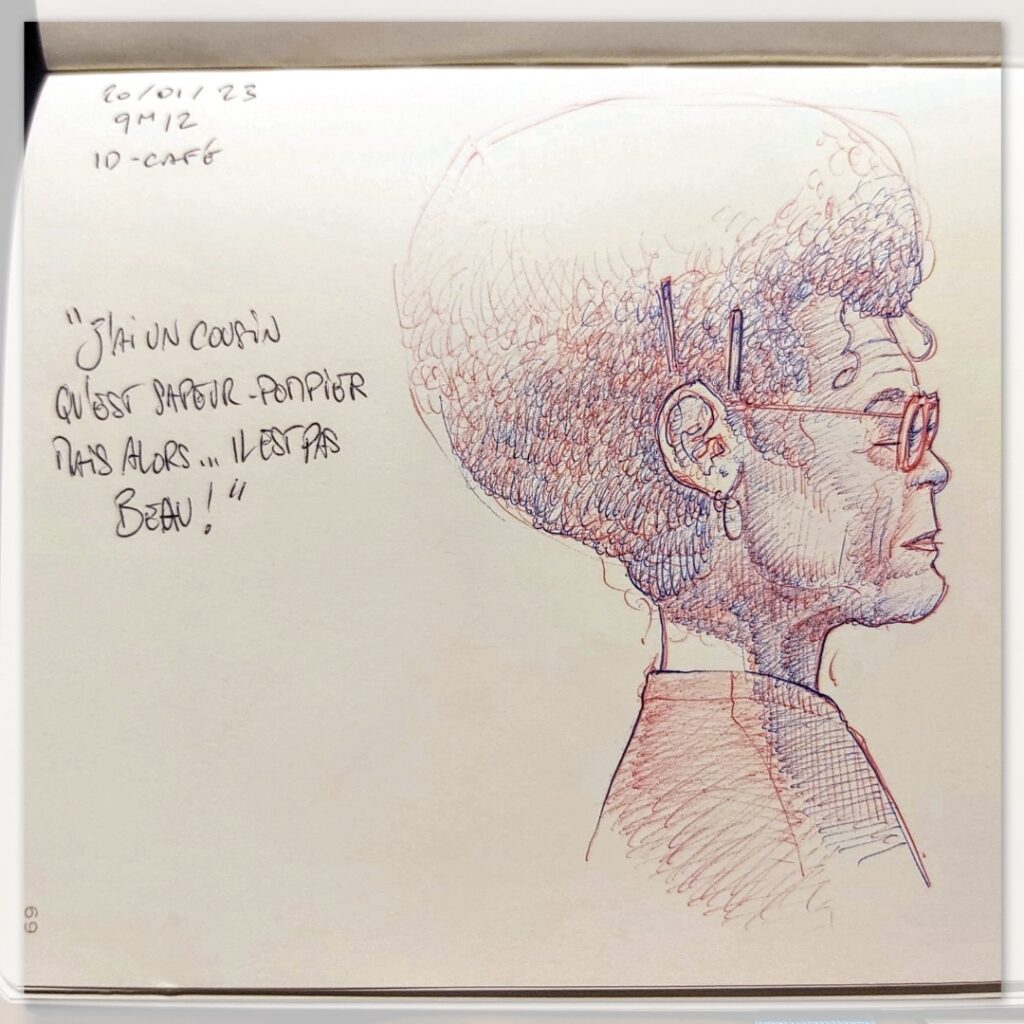 20/01/23
9H12
ID-CAFÉ
"J'AI UN COUSIN
QU'EST SAPEUR-POMPIER
MAIS ALORS... IL EST PAS
BEAU !"
69